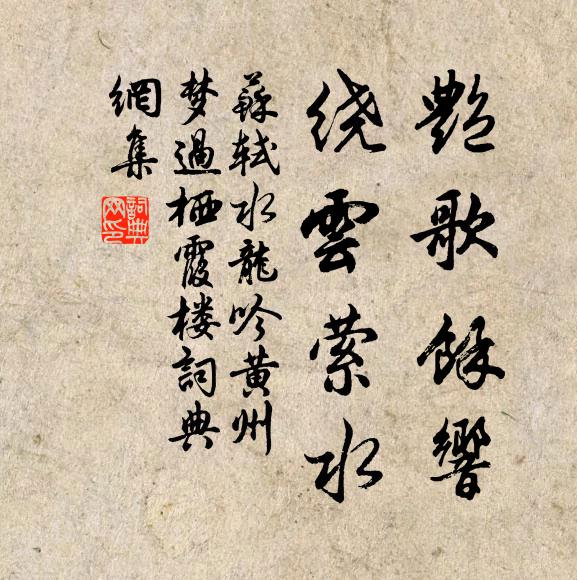 艷歌餘響
绕雲萦水
蘇軾水龍吟黄州
梦過栖霞楼詞典
網集
詞典網印